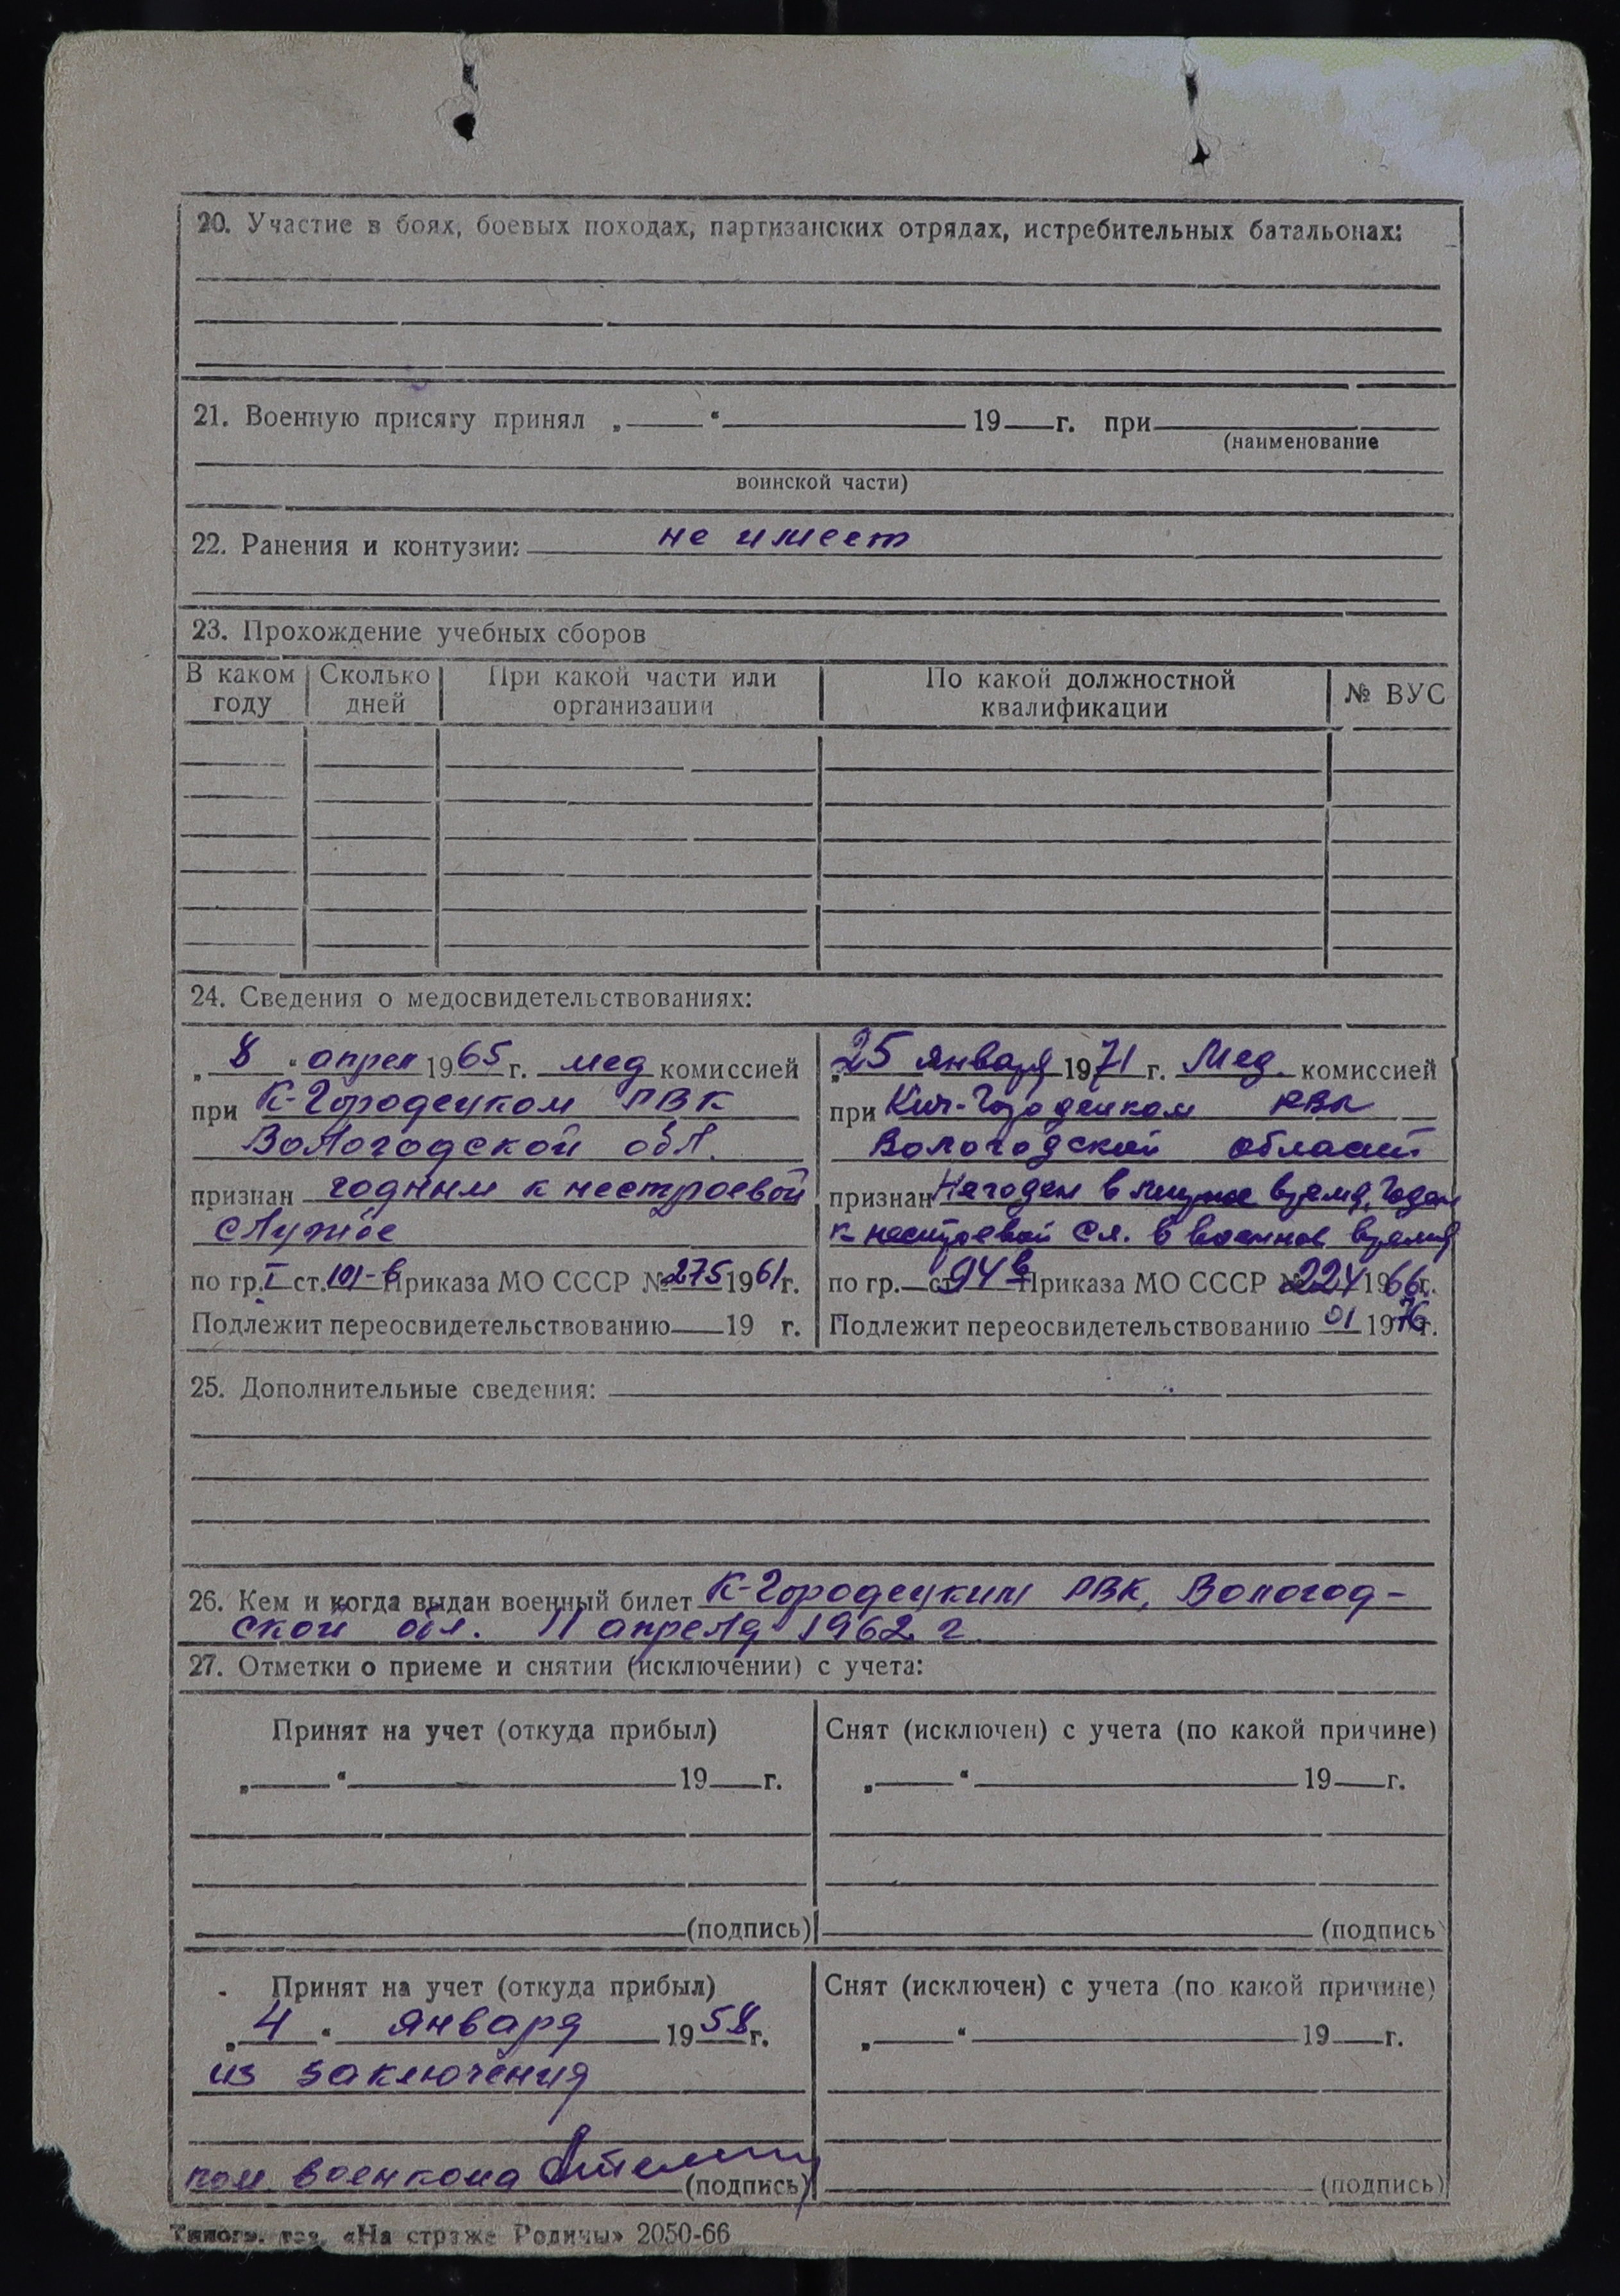 20. Участие в боях, боевых походах, партизанских отрядах, истребительных батальонах:
21. Военную присягу принял „ “ 19 г. при
(наименование
воинской части)
22. Ранения и контузии: не имеет
23. Прохождение учебных сборов
В каком году Сколько дней При какой части или организации По какой должностной квалификации № ВУС
24. Сведения о медосвидетельствованиях:
„ 8 “ апрел 1965 г. мед комиссией
при К-Городецком РВК
Вологодской обл.
признан годным к нестроевой
службе
по гр. I ст. 101-в Приказа МО СССР № 275 1961 г.
Подлежит переосвидетельствованию 19 г.
„ 25 января 1971 г. Мед. комиссией
при Кич-Городецком РВК
Вологодской области
признан Негоден в мирное время, Годен
к нестроевой сл. в военное время
по гр. ст. 94 в Приказа МО СССР № 224 1966 г.
Подлежит переосвидетельствованию 01 1976 г.
25. Дополнительные сведения:
26. Кем и когда выдан военный билет К-Городецким РВК, Вологод-
ской обл. 11 апреля 1962 г.
27. Отметки о приеме и снятии (исключении) с учета:
Принят на учет (откуда прибыл) Снят (исключен) с учета (по какой причине)
„ “ 19 г. „ “ 19 г.
(подпись) (подпись
Принят на учет (откуда прибыл) Снят (исключен) с учета (по какой причине)
„ 4 “ января 1958 г. „ “ 19 г.
из заключения
пом. военкома (подпись) (подпись)
Типогр. газ. «На страже Родины» 2050-66